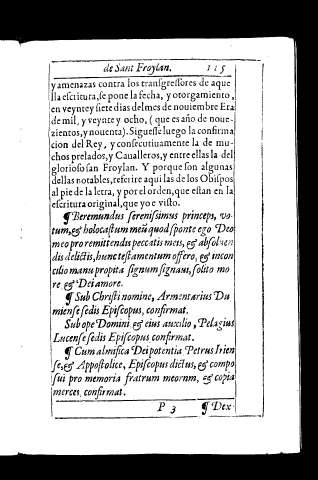 de Sant Froylan. 115
y amenazas contra los transgressores de aque
lla escritura, se pone la fecha, y otorgamiento,
en veynte y siete dias del mes de nouiembre Era
de mil, y veynte y ocho, (que es año de noue-
zientos, y nouenta). Siguesse luego la confirma
cion del Rey, y consecutiuamente la de mu-
chos prelados, y Caualleros, y entre ellas la del
glorioso san Froylan. Y porque son algunas
dellas notables, referire aqui las de los Obispos
al pie de la letra, y por el orden, que estan en la
escritura original, que yo e visto.
¶ Beremundus serenissimus princeps, vo-
tum, & holocaustum meũ quod sponte ego Deo
meo pro remittendis peccatis meis, & absoluen
dis delictis, hunc testamentum offero, & in con
cilio manu propita signum signaui, solito mo
re & Dei amore.
¶ Sub Christi nomine, Armentarius Du
miense sedis Episcopus, confirmat.
Sub ope Domini & eius auxilio, Pelagius
Lucense sedis Episcopus confirmat.
¶ Cum almifica Dei potentia Petrus Irien
se, & Appostolice, Episcopus dictus, & compo
sui pro memoria fratrum meorum, & copia
merces, confirmat.
P 3 ¶ Dex-